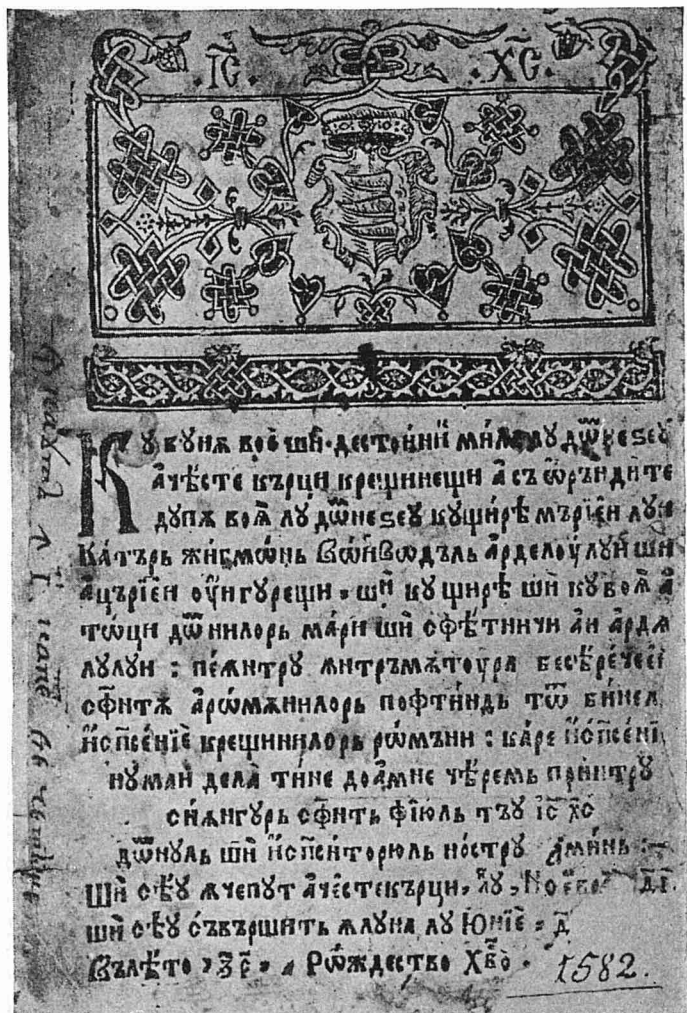 ·ІС· ·ХС·
Кꙋ бꙋнѫ воѐ ши дестоиніи милелꙋ дѡⷨнеꙅеꙋ
ачѣсте кърци крещинещи а съ ѡръндите
дꙋпѫ воѧ лꙋ дѡⷨнеꙅеꙋ кꙋ щирѣ мъріеи лꙋи
Катъръ жигмѡнь Вѡивѡдъль арделꙋлꙋи ши
ацъріеи оунгꙋрещи · ши кꙋ щирѣ ши кꙋ воѧ а
тѡци дѡⷨнилорь мари ши сфѣтничи аи ардѧ
лꙋлꙋи : пеѧнтрꙋ
сфⷩтѫ арѡмѫнилорь пофтиндь тѡⷮ бинел
испⷭеніе крещинилорь рѡмъни : каре испⷭені
нꙋмаи дела тине доамне чѣремь приⷩтрꙋ
сиѫнгꙋрь сфⷩть фіюль тъꙋ іс хс
дѡⷨнꙋль ши испⷭиторюль нострꙋ аминь :~
Ши сѣꙋ ѫчепꙋт ачѣстекърци, лꙋ, Ноевр҇ ді
ши сѣꙋ съвършить ѫлꙋна лꙋ Юніе · д
Вълѣто ҂зр҃ · Рѡждество Хв҃о · 1582.